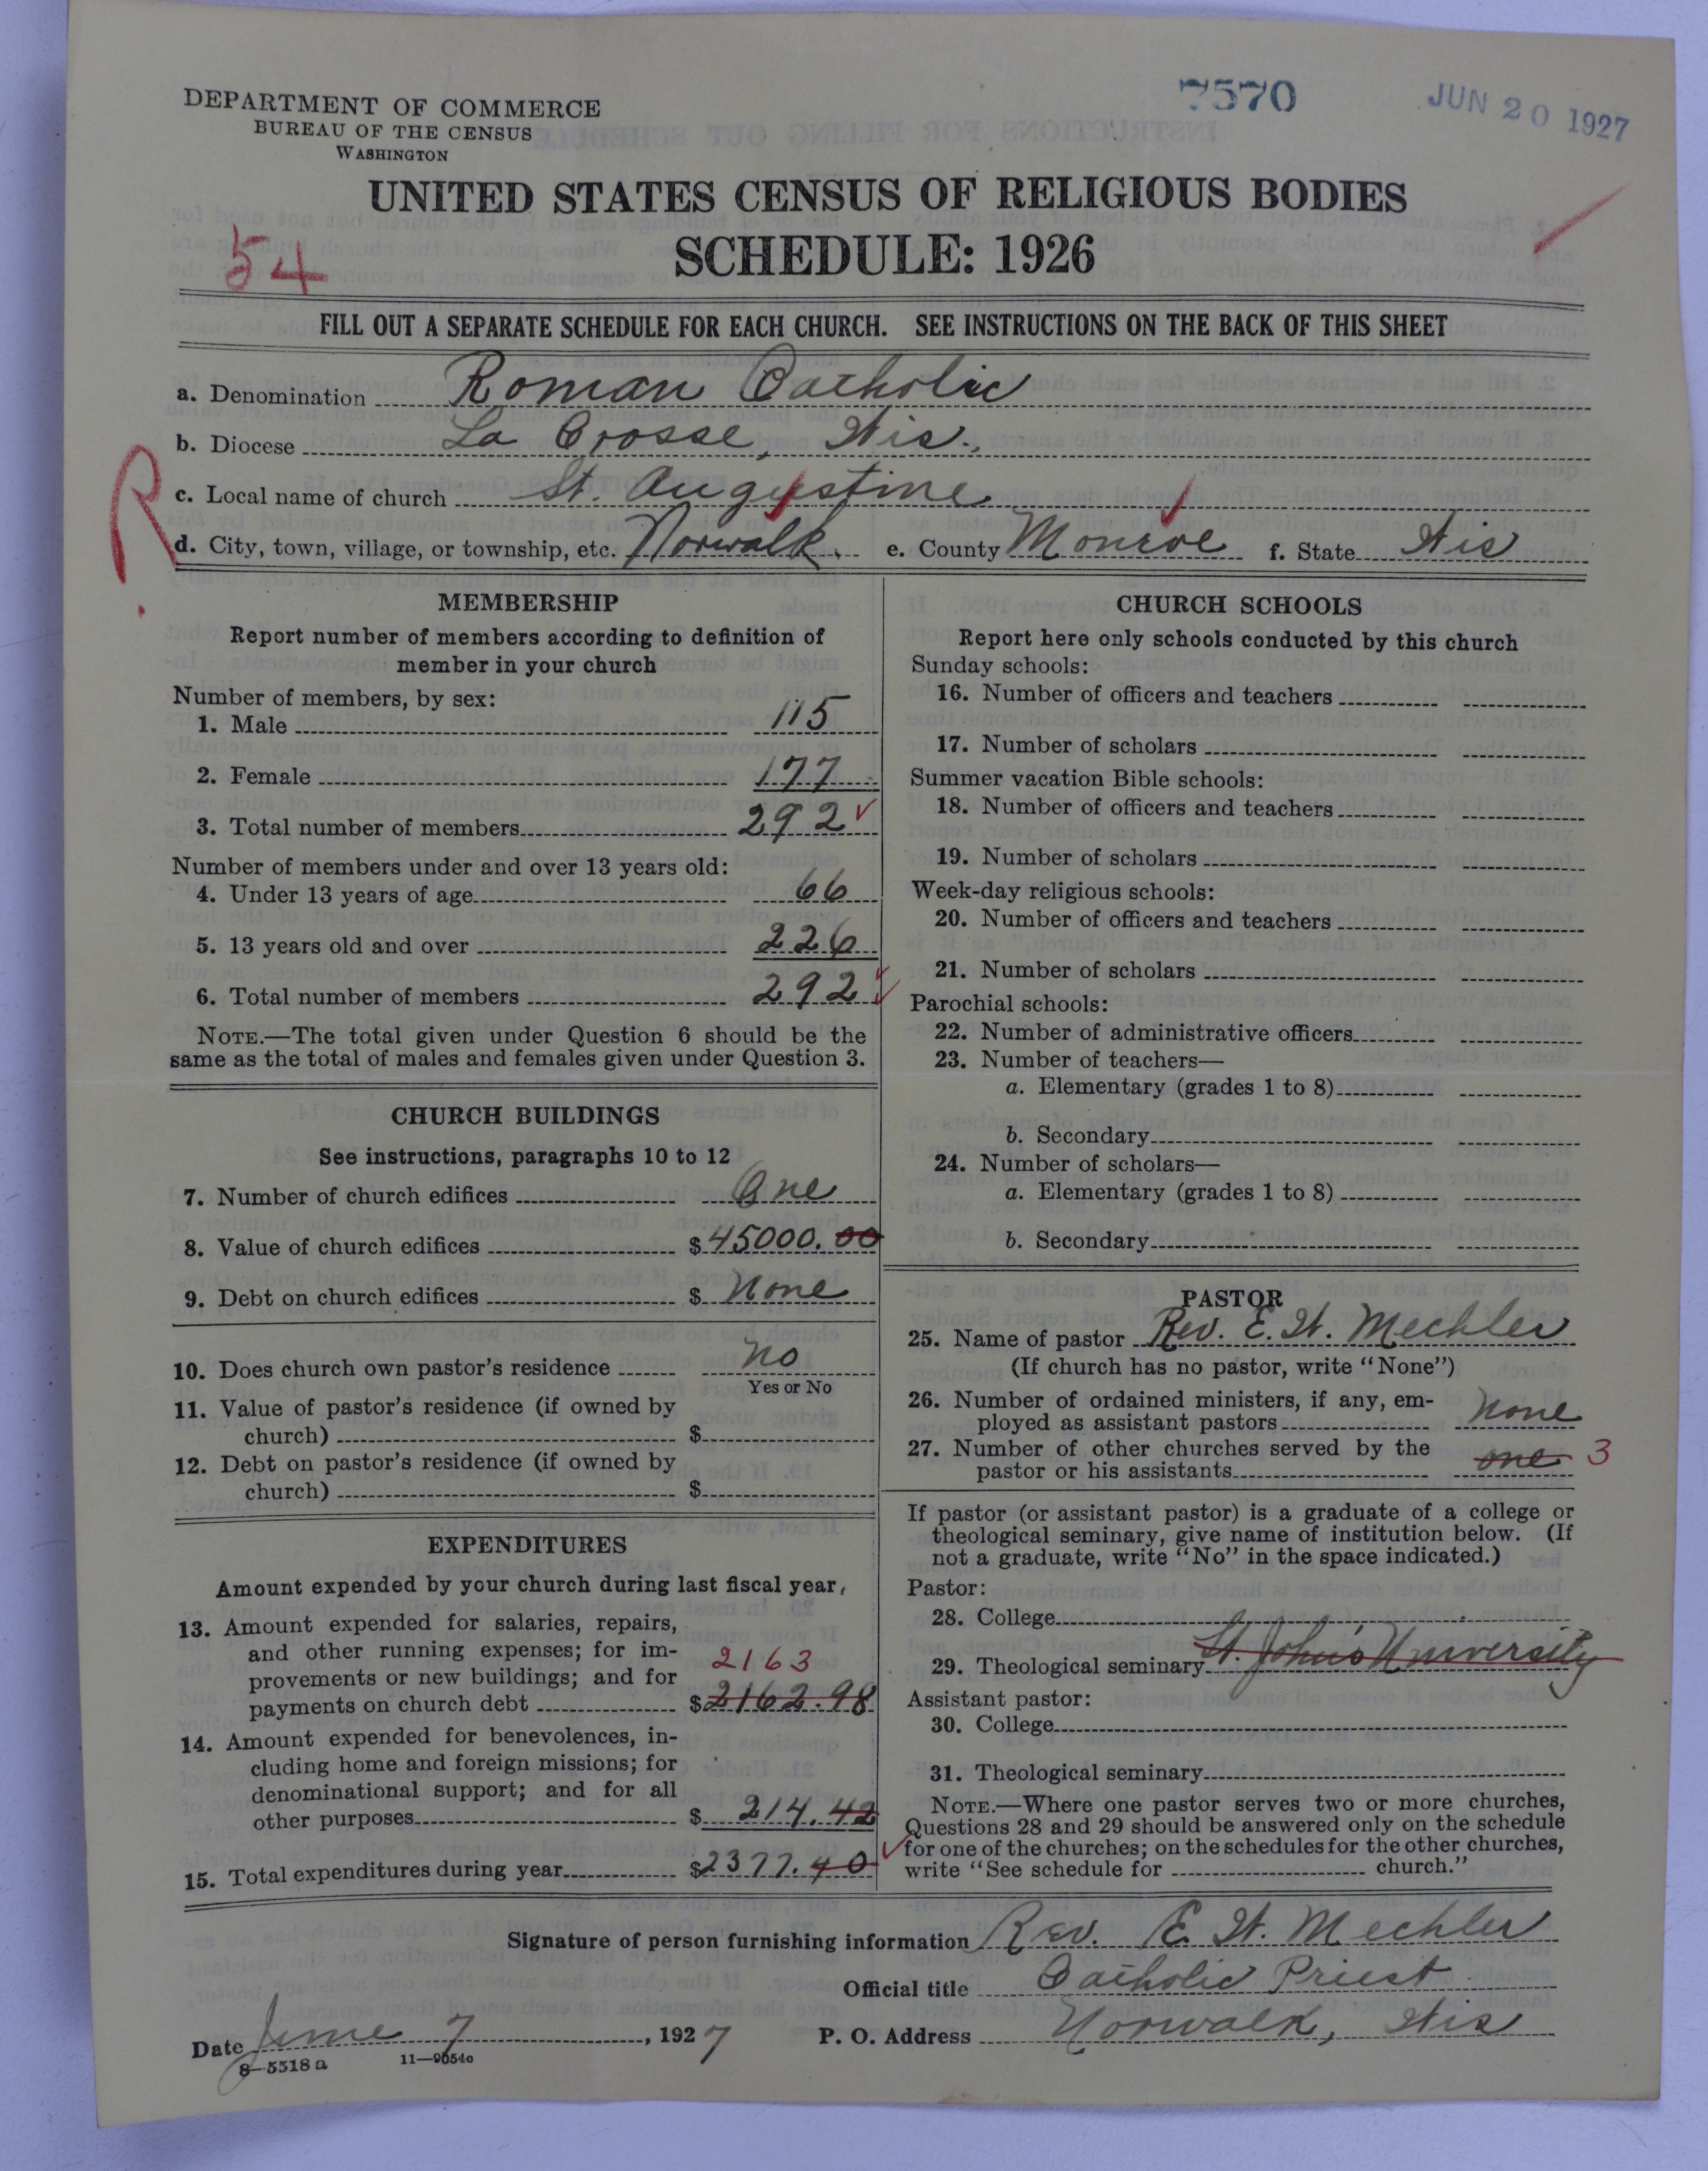 DEPARTMENT OF COMMERCE
BUREAU OF THE CENSUS
WASHINGTON
7570
JUN 20 1927
UNITED STATES CENSUS OF RELIGIOUS BODIES
SCHEDULE: 1926
54
FILL OUT A SEPARATE SCHEDULE FOR EACH CHURCH. SEE INSTRUCTIONS ON THE BACK OF THIS SHEET
a. Denomination Roman Catholic
b. Diocese La Crosse, Wis.
R
c. Local name of church St. Augustine
d. City, town, village, or township, etc. Norwalk. e. County Monroe f. State Wis
MEMBERSHIP
Report number of members according to definition of
member in your church
Number of members, by sex:
1. Male 115
2. Female 177
3. Total number of members 292 ✓
Number of members under and over 13 years old:
4. Under 13 years of age 66
5. 13 years old and over 226
6. Total number of members 292 ✓
NOTE.—The total given under Question 6 should be the
same as the total of males and females given under Question 3.
CHURCH BUILDINGS
See instructions, paragraphs 10 to 12
7. Number of church edifices One
8. Value of church edifices $45000.00
9. Debt on church edifices $ None
10. Does church own pastor's residence No
Yes or No
11. Value of pastor's residence (if owned by
church) $
12. Debt on pastor's residence (if owned by
church) $
EXPENDITURES
Amount expended by your church during last fiscal year,
13. Amount expended for salaries, repairs,
and other running expenses; for im-
provements or new buildings; and for 2163
payments on church debt $2162.98
14. Amount expended for benevolences, in-
cluding home and foreign missions; for
denominational support; and for all
other purposes $ 214.42
15. Total expenditures during year $2377.40
CHURCH SCHOOLS
Report here only schools conducted by this church
Sunday schools:
16. Number of officers and teachers
17. Number of scholars
Summer vacation Bible schools:
18. Number of officers and teachers
19. Number of scholars
Week-day religious schools:
20. Number of officers and teachers
21. Number of scholars
Parochial schools:
22. Number of administrative officers
23. Number of teachers—
a. Elementary (grades 1 to 8)
b. Secondary
24. Number of scholars—
a. Elementary (grades 1 to 8)
b. Secondary
PASTOR
25. Name of pastor Rev. E. W. Mechler
(If church has no pastor, write "None")
26. Number of ordained ministers, if any, em-
ployed as assistant pastors None
27. Number of other churches served by the
pastor or his assistants one 3
If pastor (or assistant pastor) is a graduate of a college or
theological seminary, give name of institution below. (If
not a graduate, write "No" in the space indicated.)
Pastor:
28. College
29. Theological seminary St. John's University
Assistant pastor:
30. College
31. Theological seminary
NOTE.—Where one pastor serves two or more churches,
Questions 28 and 29 should be answered only on the schedule
✓ for one of the churches; on the schedules for the other churches,
write "See schedule for church."
Signature of person furnishing information Rev. E. W. Mechler
Official title Catholic Priest
Date June 7, 1927 P. O. Address Norwalk, Wis
8—5518 a 11—9054c